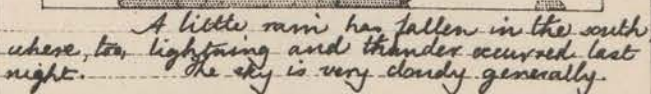 A little rain has fallen in the south,
where, too, lightning and thunder occurred last
night. The sky is very cloudy generally.